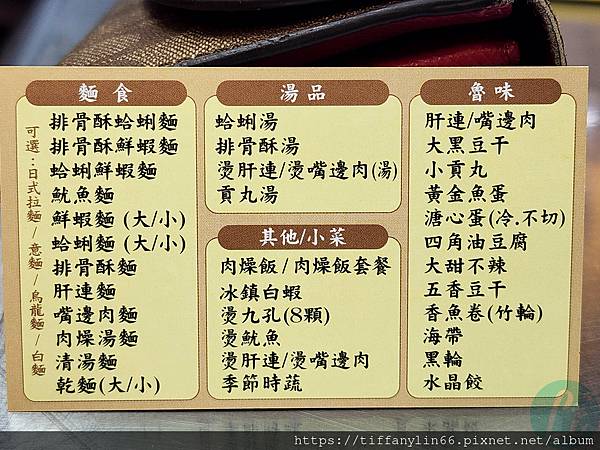 麵食
可選：日式拉麵/意麵/烏龍麵/白麵
排骨酥蛤蜊麵
排骨酥鮮蝦麵
蛤蜊鮮蝦麵
魷魚麵
鮮蝦麵 (大/小)
蛤蜊麵 (大/小)
排骨酥麵
肝連麵
嘴邊肉麵
肉燥湯麵
清湯麵
乾麵(大/小)
湯品
蛤蜊湯
排骨酥湯
燙肝連/燙嘴邊肉(湯)
貢丸湯
其他/小菜
肉燥飯/肉燥飯套餐
冰鎮白蝦
燙九孔(8顆)
燙魷魚
燙肝連/燙嘴邊肉
季節時蔬
魯味
肝連/嘴邊肉
大黑豆干
小貢丸
黃金魚蛋
溏心蛋(冷.不切)
四角油豆腐
大甜不辣
五香豆干
香魚卷(竹輪)
海帶
黑輪
水晶餃
https://tiffanylin66.pixnet.net/album